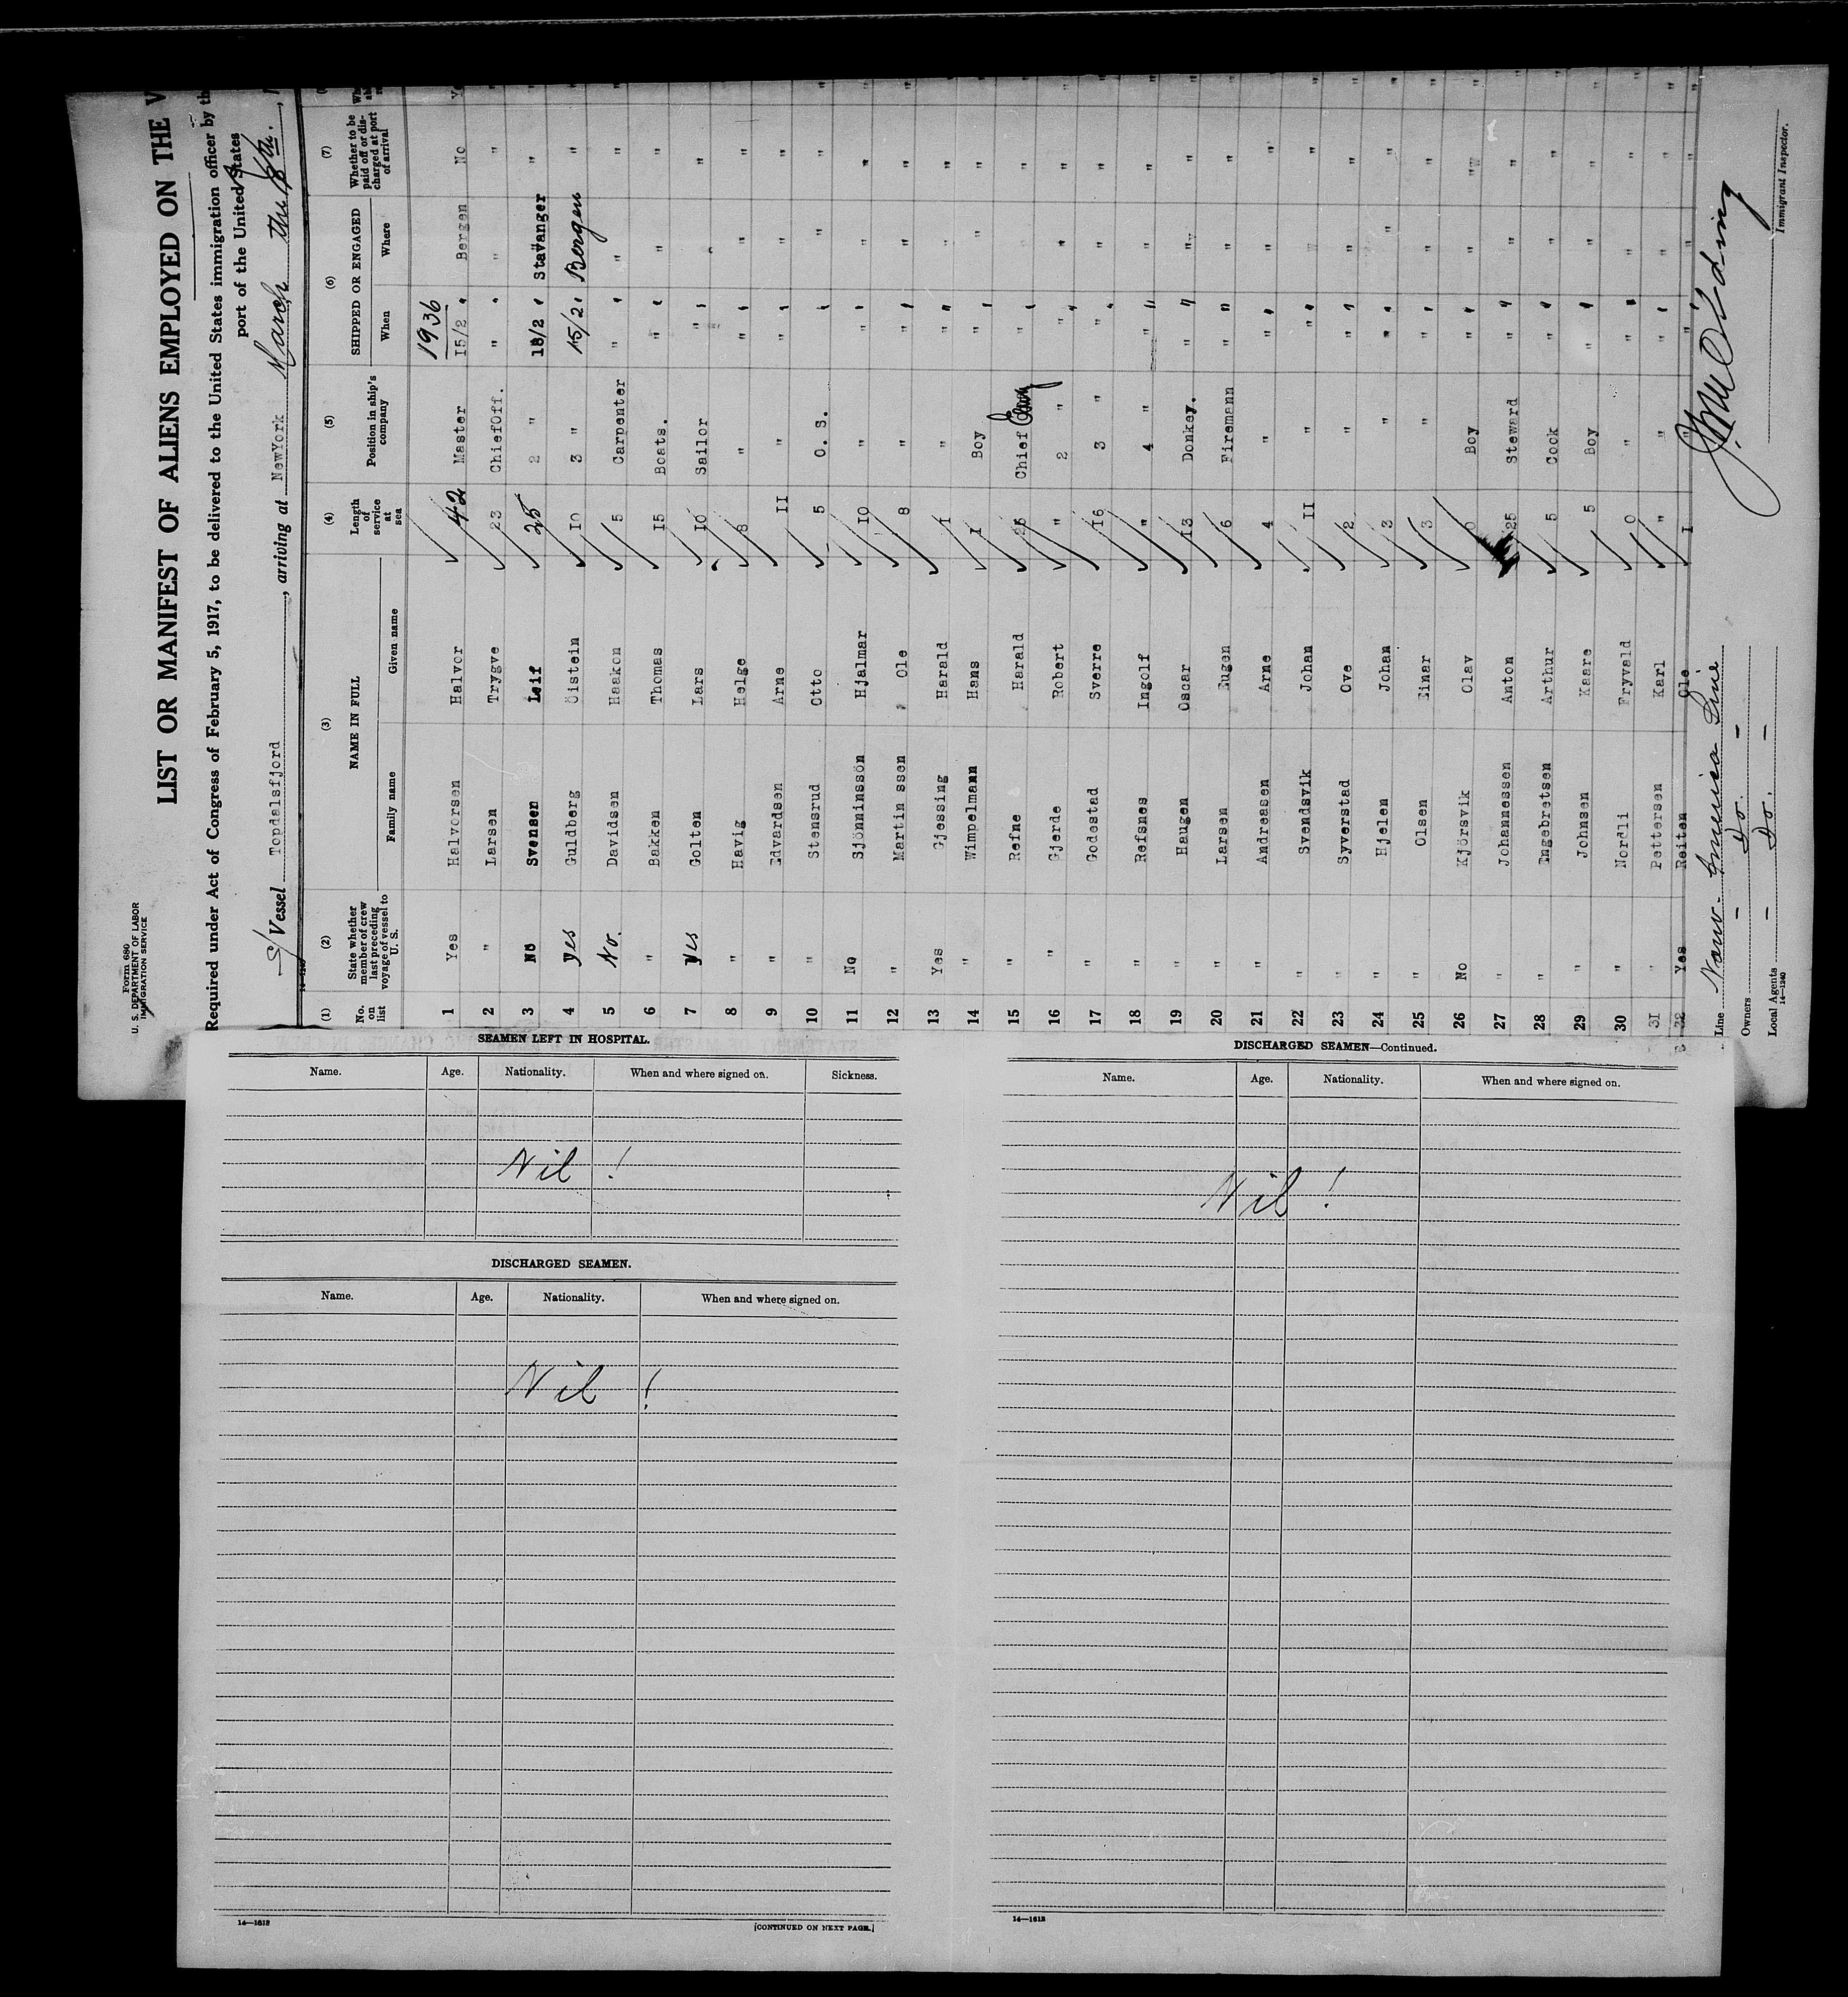 Form 680
U. S. DEPARTMENT OF LABOR
IMMIGRATION SERVICE
LIST OR MANIFEST OF ALIENS EMPLOYED ON THE V
Required under Act of Congress of February 5, 1917, to be delivered to the United States immigration officer by th
port of the United States
S/ Vessel Topdalsfjord, arriving at NewYork March the
(1) (2) (3) (4) (5) (6) (7)
No. on list
State whether member of crew last preceding voyage of vessel to U. S.
NAME IN FULL
Family name Given name
Length of service at sea
Position in ship's company
SHIPPED OR ENGAGED
When Where
Whether to be paid off or discharged at port of arrival
1936
1 Yes Halvorsen Halvor 42 Master 15/2 " Bergen No
2 " Larsen Trygve 23 ChiefOff. " " " "
3 No Svensen Leif 25 2 " 18/2 " Stavanger "
4 Yes Guldberg Öistein 10 3 " 15/2 " Bergen "
5 No. Davidsen Haakon 5 Carpenter " " " "
6 " Bakken Thomas 15 Boats. " " " "
7 Yes Golten Lars 10 Sailor " " "
8 " Havig Helge 8 " " " " "
9 " Edvardsen Arne 11 " " " " "
10 " Stensrud Otto 5 O. S. " " "
11 No Sjönninssön Hjalmar 10 " " " " "
12 " Martin ssen Ole 8 " " " " "
13 Yes Gjessing Harald 1 " " " " "
14 " Wimpelmann Hans 1 Boy " " " "
15 " Refne Harald 26 Chief Eng " " " "
16 " Gjerde Robert " 2 " " " "
17 Godestad Sverre 16 3 " " " " "
18 " Refsnes Ingolf " 4 " " " " "
19 " Haugen Oscar 13 Donkey. " " " "
20 " Larsen Eugen 6 Firemann " " " "
21 " Andreasen Arne 4 " " " " "
22 " Svendsvik Johan 11 " " " " "
23 " Syverstad Ove 2 " " " " "
24 " Hjelen Johan 3 " " " " "
25 " Olsen Einar 3 " " " " "
26 No Kjörsvik Olav 0 Boy " " " "
27 " Johannessen Anton 25 Steward " " " "
28 " Engebretsen Arthur 5 Cook " " " "
29 " Johnsen Kaare 5 Boy " " " "
30 " Nordli Fryvald 0 " " " " "
31 " Pettersen Karl " " " " " "
32 Yes Reiten Ole 1 " " " "
Line Norw. America Line
Owners - Do. -
Local Agents - Do. -
14—1240
Immigrant Inspector.
SEAMEN LEFT IN HOSPITAL.
Name. Age. Nationality. When and where signed on. Sickness.
Nil !
DISCHARGED SEAMEN.
Name. Age. Nationality. When and where signed on.
Nil !
14—1613
[CONTINUED ON NEXT PAGE.]
DISCHARGED SEAMEN—Continued.
Name. Age. Nationality. When and where signed on.
Nil !
14—1613